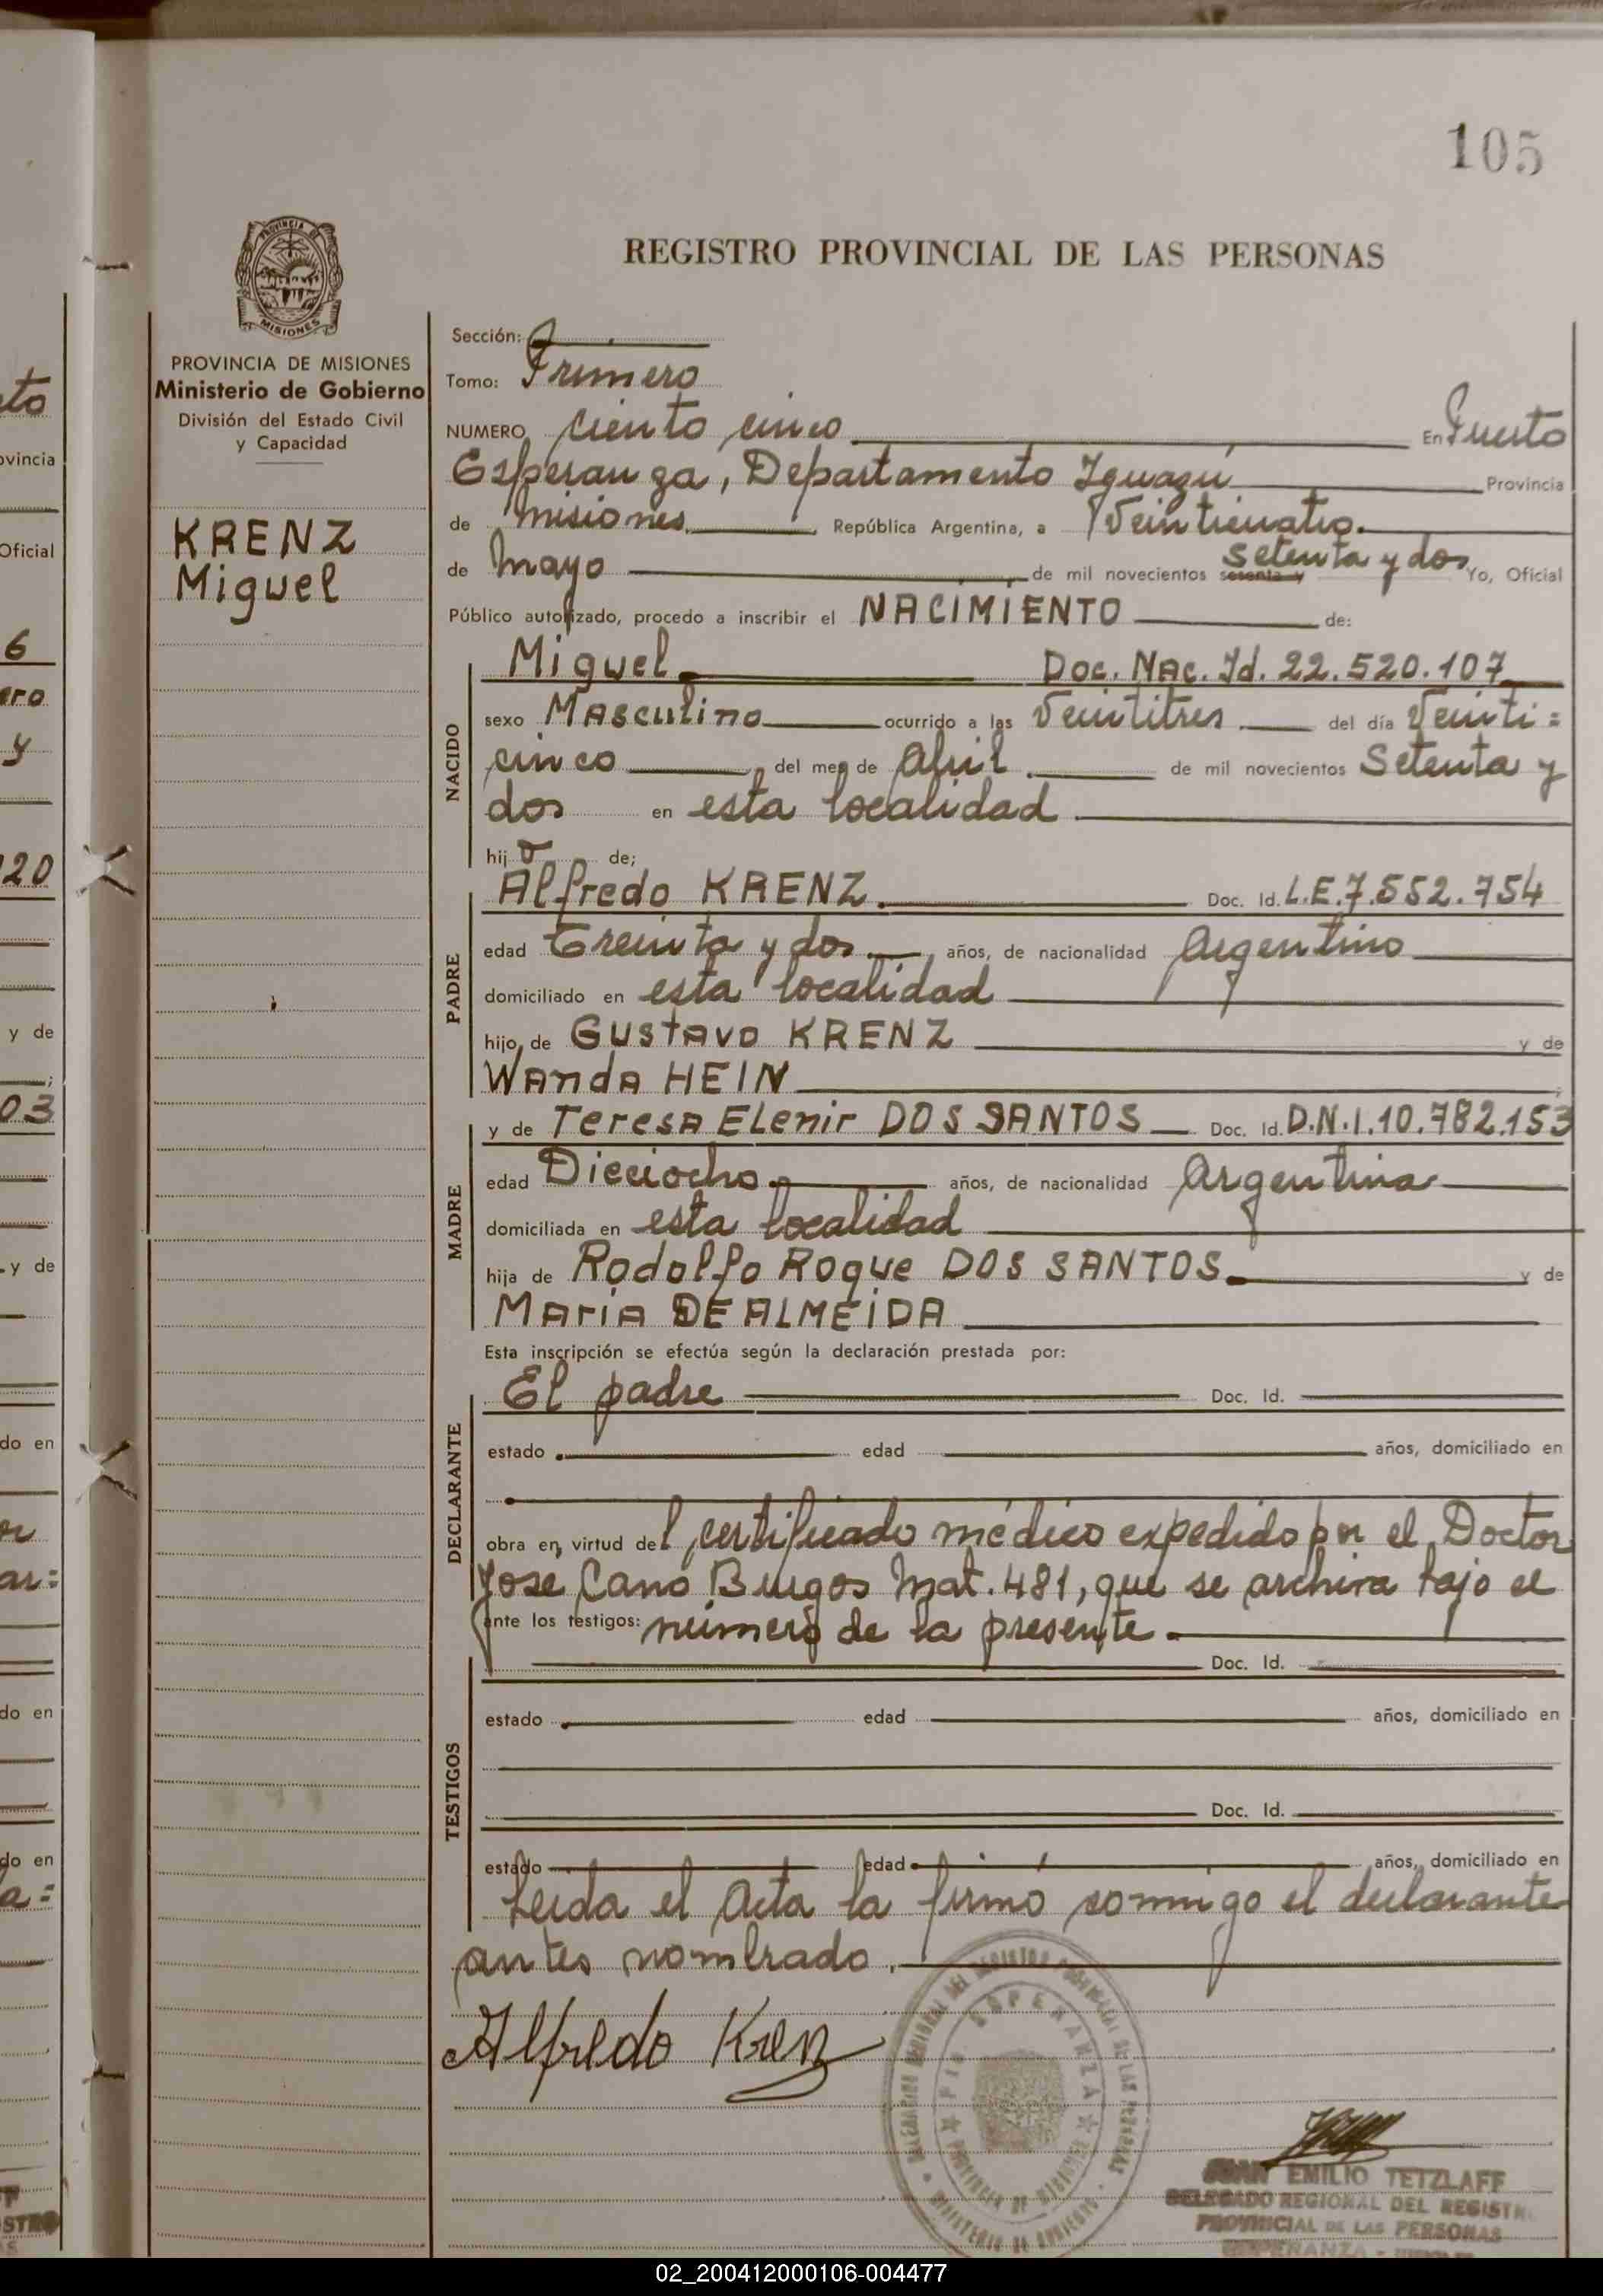 105
PROVINCIA DE MISIONES
REGISTRO PROVINCIAL DE LAS PERSONAS
PROVINCIA DE MISIONES
Ministerio de Gobierno
División del Estado Civil
y Capacidad
KRENZ
Miguel
Sección:
Tomo: Primero
NUMERO ciento cinco En Puerto
Esperanza, Departamento Iguazú Provincia
de Misiones, República Argentina, a Veinticuatro
de Mayo de mil novecientos sesenta y setenta y dos Yo, Oficial
Público autorizado, procedo a inscribir el NACIMIENTO de:
NACIDO
Miguel Doc. Nac. Id. 22.520.107
sexo Masculino ocurrido a las Veintitres del día Veinti=
cinco del mes de Abril de mil novecientos Setenta y
dos en esta localidad
hijo de;
PADRE
Alfredo KRENZ. Doc. Id. L.E.7.552.754
edad Treinta y dos años, de nacionalidad Argentino
domiciliado en esta localidad
hijo de Gustavo KRENZ y de
Wanda HEIN
MADRE
y de Teresa Elenir DOS SANTOS Doc. Id. D.N.I.10.782.153
edad Dieciocho años, de nacionalidad Argentina
domiciliada en esta localidad
hija de Rodolfo Roque DOS SANTOS. y de
Maria DE ALMEIDA
Esta inscripción se efectúa según la declaración prestada por:
DECLARANTE
El padre Doc. Id.
estado edad años, domiciliado en
obra en virtud del certificado médico expedido por el Doctor
Jose Cano Burgos Mat. 481, que se archiva bajo el
ante los testigos: número de la presente.
TESTIGOS
Doc. Id.
estado edad años, domiciliado en
Doc. Id.
estado edad años, domiciliado en
Leida el Acta la firmó conmigo el declarante
antes nombrado.
Alfredo Krenz
JUAN EMILIO TETZLAFF
DELEGADO REGIONAL DEL REGISTRO
PROVINCIAL DE LAS PERSONAS
02_200412000106-004477